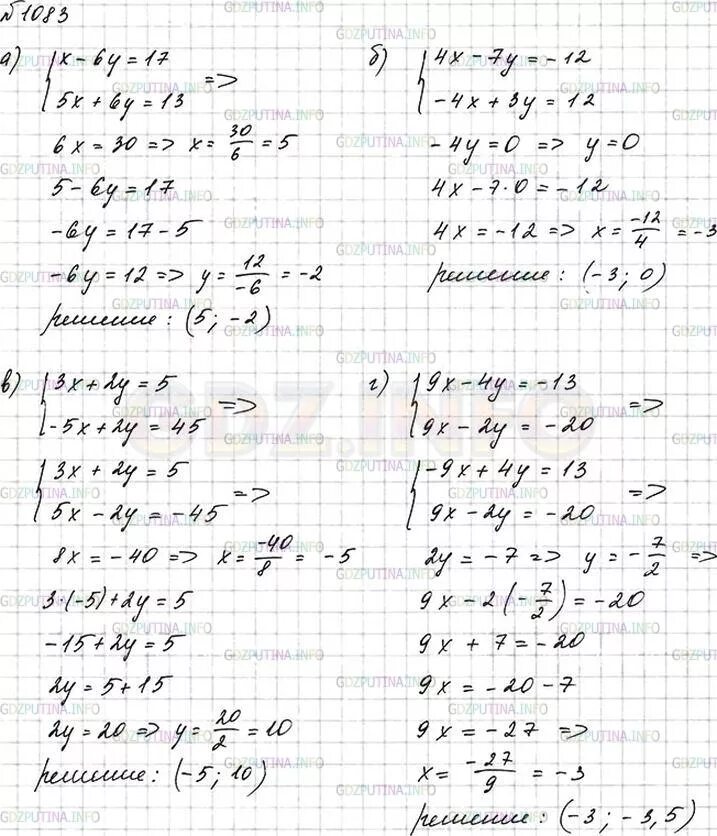 №1083
а) { x - 6y = 17
5x + 6y = 13 =>
6x = 30 => x = 30/6 = 5
5 - 6y = 17
-6y = 17 - 5
-6y = 12 => y = 12/-6 = -2
решение: (5; -2)
б) { 4x - 7y = -12
-4x + 3y = 12
-4y = 0 => y = 0
4x - 7·0 = -12
4x = -12 => x = -12/4 = -3
решение: (-3; 0)
в) { 3x + 2y = 5
-5x + 2y = 45 =>
{ 3x + 2y = 5
5x - 2y = -45 =>
8x = -40 => x = -40/8 = -5
3·(-5) + 2y = 5
-15 + 2y = 5
2y = 5 + 15
2y = 20 => y = 20/2 = 10
решение: (-5; 10)
г) { 9x - 4y = -13
9x - 2y = -20 =>
{ -9x + 4y = 13
9x - 2y = -20 =>
2y = -7 => y = -7/2 =>
9x - 2(-7/2) = -20
9x + 7 = -20
9x = -20 - 7
9x = -27 =>
x = -27/9 = -3
решение: (-3; -3,5)
GDZ.INFO
GDZPUTINA.INFO